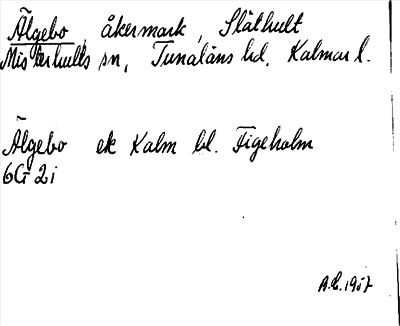 Älgebo, åkermark, Slåthult
Misterhults sn, Tunaläns hd. Kalmar l.
Älgebo ek Kalm bl. Figeholm
6G 2i
A.E. 1957